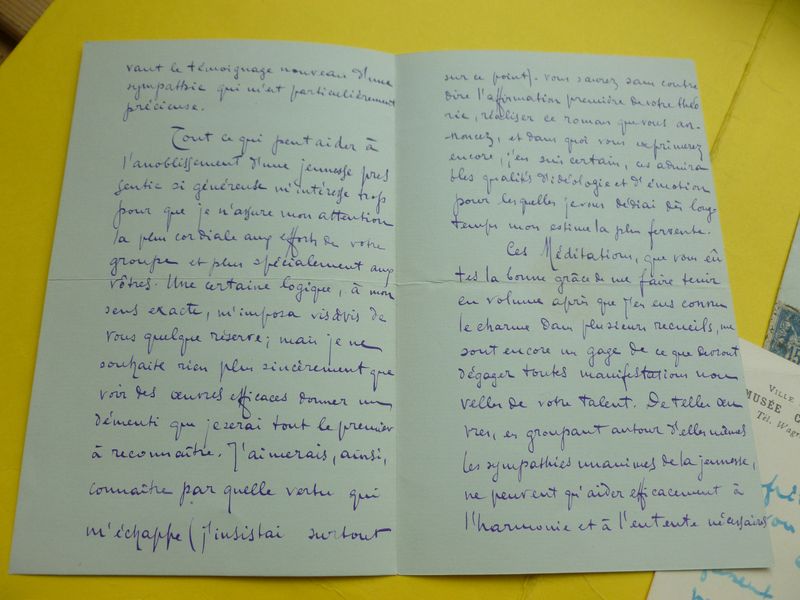 vant le témoignage nouveau d'une
sympathie qui m'est particulièrement
précieuse.
Tout ce qui peut aider à
l'anoblissement d'une jeunesse pres
sentie si généreuse m'intéresse trop
pour que je n'assure mon attention
la plus cordiale aux efforts de votre
groupe et plus spécialement aux
vôtres. Une certaine logique, à mon
sens exacte, m'imposa vis à vis de
vous quelque réserve; mais je ne
souhaite rien plus sincèrement que
voir des œuvres efficaces donner un
démenti que je serai tout le premier
à reconnaître. J'aimerais, ainsi,
connaître par quelle vertu qui
m'échappe (j'insistai surtout
sur ce point). vous saurez sans contre
dire l'affirmation première de votre théo
rie, réaliser ce roman que vous an-
-noncez, et dans quoi vous exprimerez
encore, j'en suis certain, ces admira
bles qualités d'idéologie et d'émotion
pour lesquelles je vous dédiai dès long-
temps mon estime la plus fervente.
Ces Méditations, que vous eû
tes la bonne grâce de me faire tenir
en volume après que j'en eus connu
le charme dans plusieurs recueils, me
sont encore un gage de ce que devront
dégager toutes manifestations nou
velles de votre talent. De telles œu
vres, en groupant autour d'elles mêmes
les sympathies unanimes de la jeunesse,
ne peuvent qu'aider efficacement à
l'harmonie et à l'entente nécessaires
15
VILLE
MUSÉE
Tél. Wagr